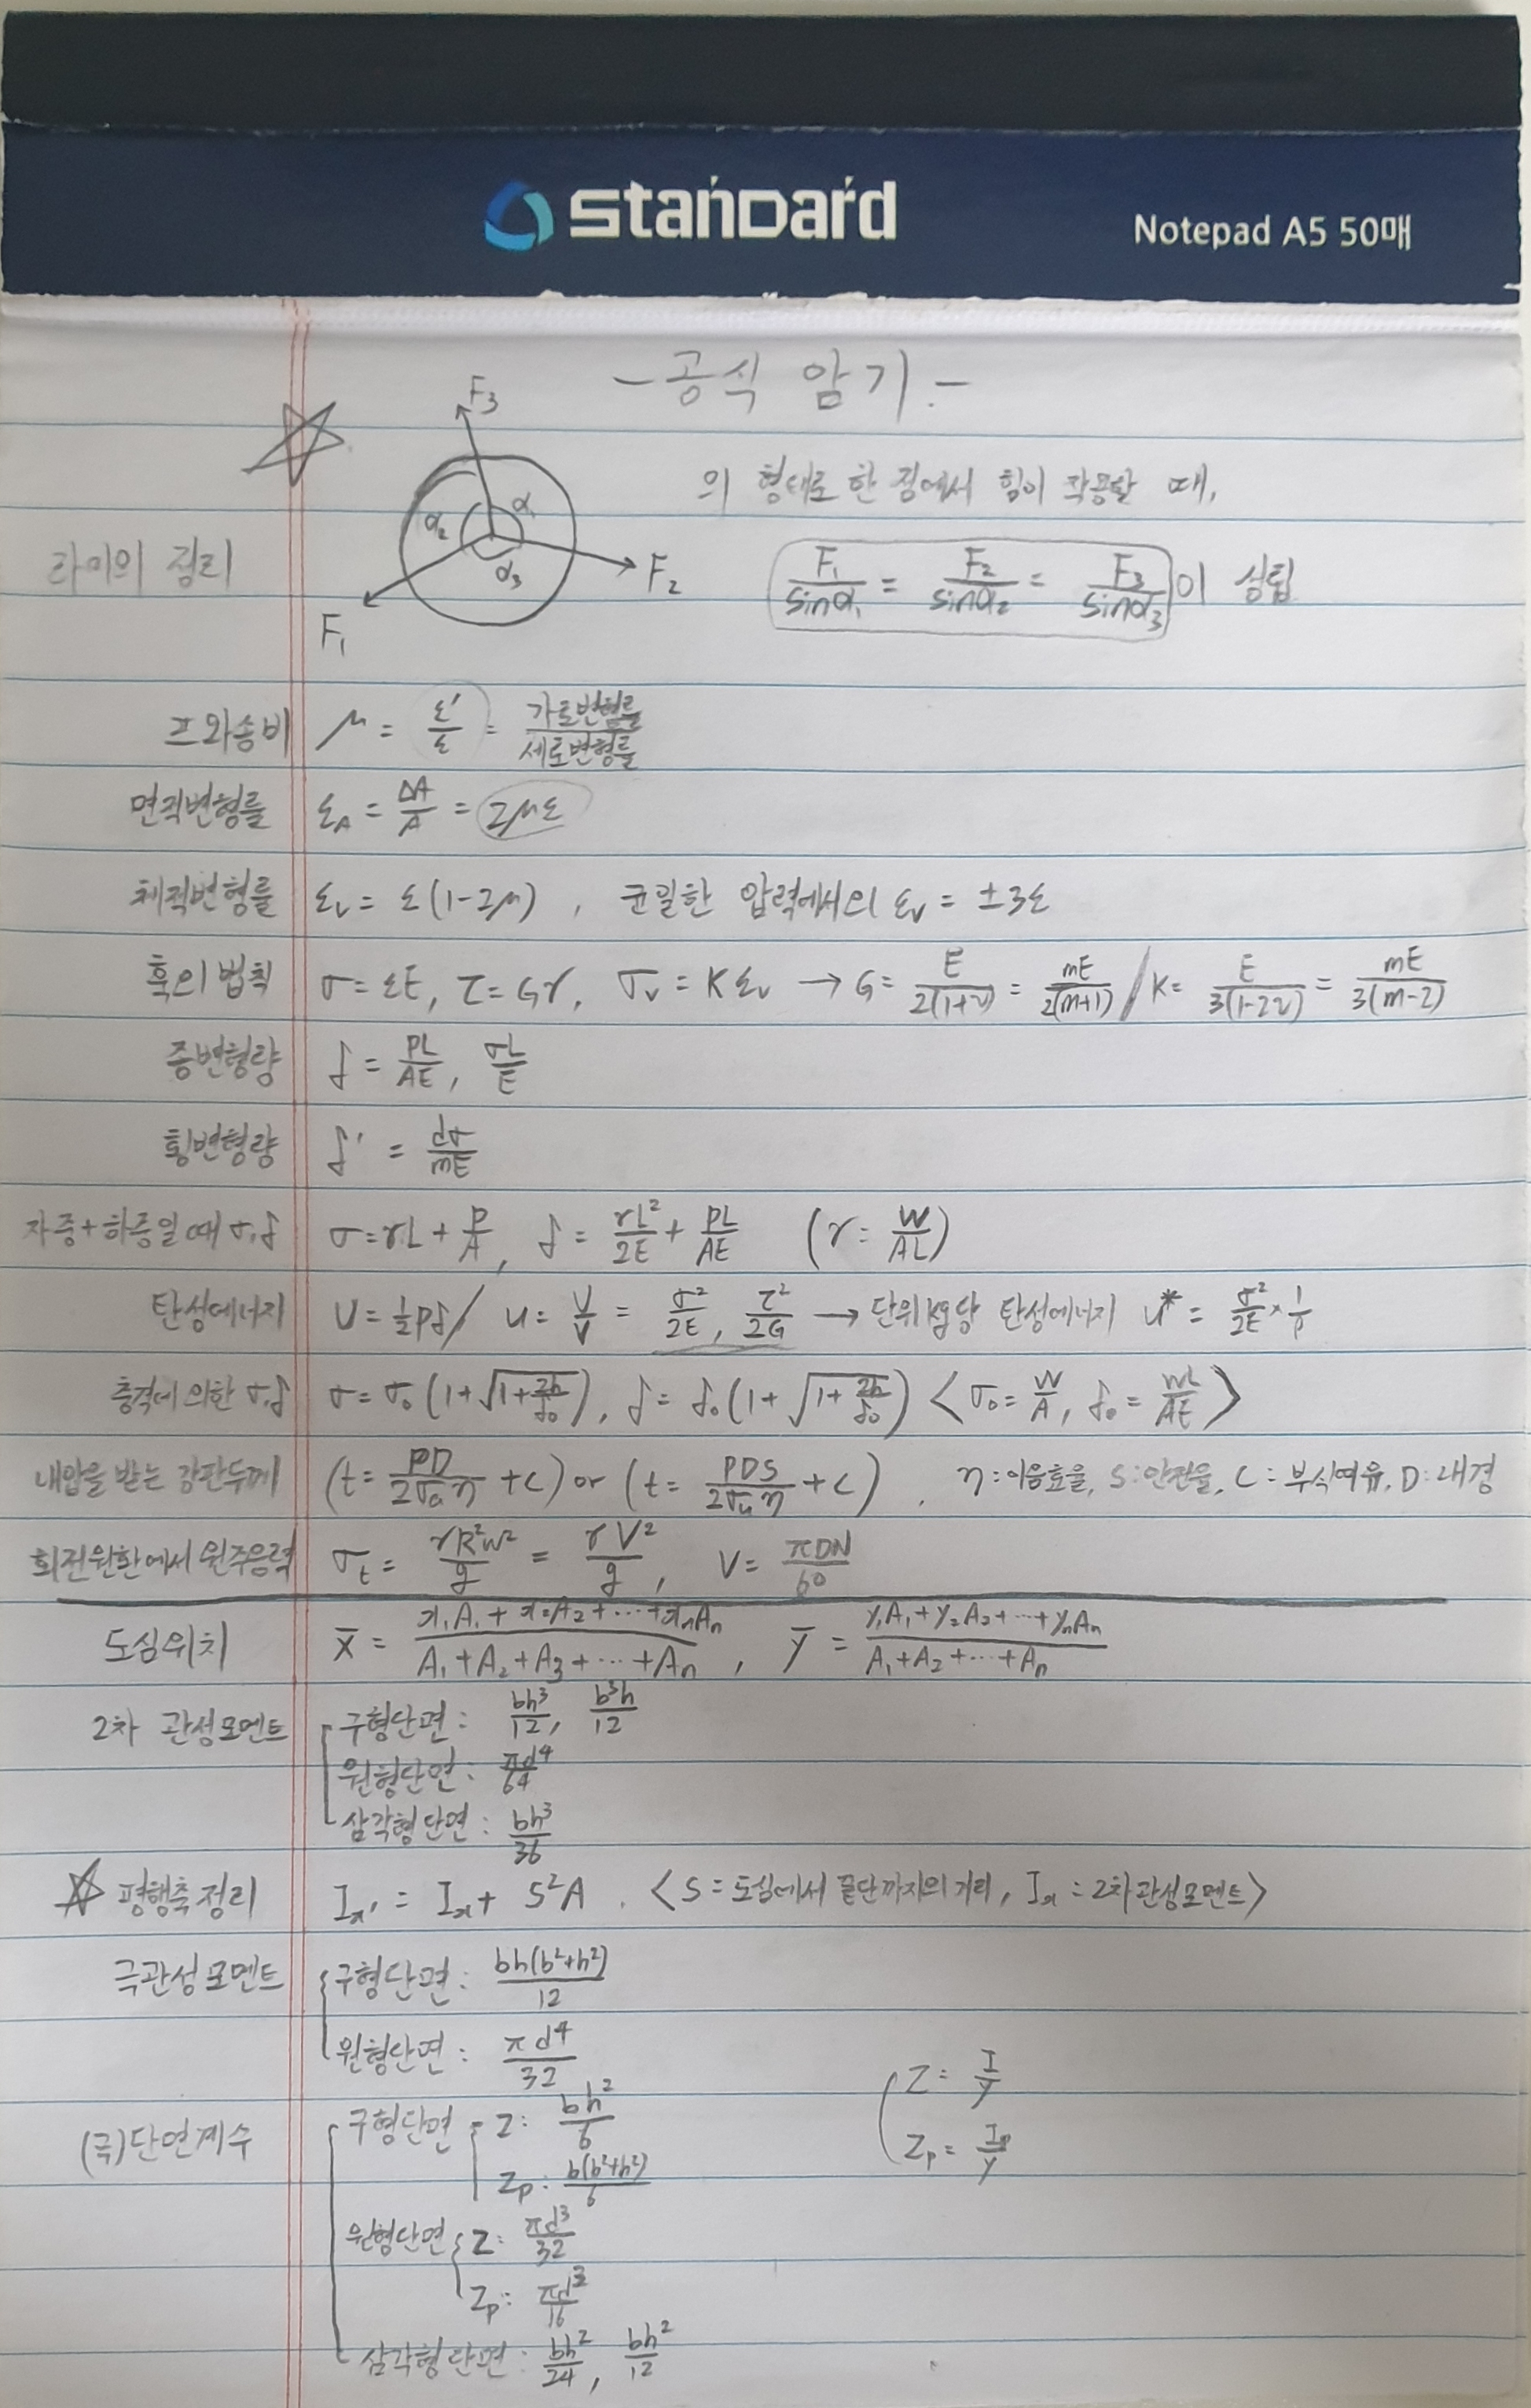 standard
Notepad A5 50매
- 공식 암기. -
F₃
의 형태로 한 점에서 힘이 작용할 때,
α₂ α₁ α₃
라미의 정리
F₁ F₂
F₁/sinα₁ = F₂/sinα₂ = F₃/sinα₃ 이 성립
프와송비 μ = ε'/ε = 가로변형률/세로변형률
면적변형률 ε_A = ΔA/A = 2με
체적변형률 ε_v = ε(1-2μ) , 균일한 압력에서의 ε_v = ±3ε
훅의 법칙 σ = εE, τ = Gγ, σ_v = Kε_v → G = E/2(1+ν) = mE/2(m+1) / K = E/3(1-2ν) = mE/3(m-2)
종변형량 δ = PL/AE, σL/E
횡변형량 δ' = dσ/mE
자중+하중일 때 σ,δ σ = γL + P/A, δ = γL²/2E + PL/AE (γ = W/AL)
탄성에너지 U = ½Pδ / u = U/V = σ²/2E, τ²/2G → 단위kg당 탄성에너지 u* = σ²/2E × 1/ρ
충격에 의한 σ,δ σ = σ₀(1+√(1+2h/δ₀)), δ = δ₀(1+√(1+2h/δ₀)) <σ₀ = W/A, δ₀ = WL/AE>
내압을 받는 강판두께 (t = PD/2σ_aη + C) or (t = PDS/2σ_uη + C) , η:이음효율, S:안전율, C:부식여유, D:내경
회전원환에서 원주응력 σ_t = γR²ω²/g = γV²/g, V = πDN/60
도심위치 x̄ = x₁A₁ + x₂A₂ + ⋯ + xₙAₙ / A₁+A₂+A₃+⋯+Aₙ , ȳ = y₁A₁+y₂A₂+⋯+yₙAₙ / A₁+A₂+⋯+Aₙ
2차 관성모멘트 구형단면 : bh³/12, b³h/12
원형단면 : πd⁴/64
삼각형단면 : bh³/36
평행축정리 Iₓ' = Iₓ + S²A . <S = 도심에서 끝단까지의 거리, Iₓ = 2차관성모멘트>
극관성모멘트 구형단면 : bh(b²+h²)/12
원형단면 : πd⁴/32
Z = I/y
(극)단면계수 구형단면 Z : bh²/6
Z_p = I_p/y
Z_p : b(b²+h²)/6
원형단면 Z : πd³/32
Z_p : πd³/16
삼각형단면 : bh²/24, bh²/12